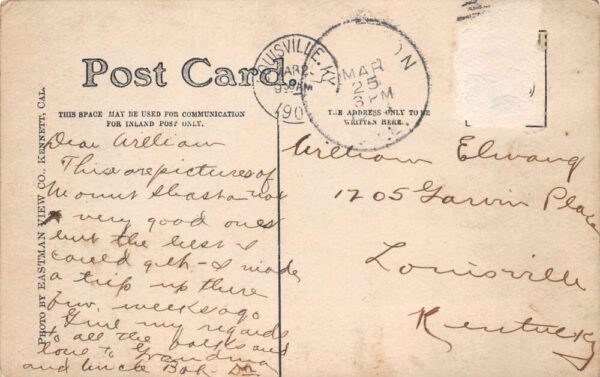 Post Card.
THIS SPACE MAY BE USED FOR COMMUNICATION
FOR INLAND POST ONLY.
THE ADDRESS ONLY TO BE
WRITTEN HERE.
LOUISVILLE, KY.
MAR
25
3 PM
ON
PHOTO BY EASTMAN VIEW CO., KENNETT, CAL.
Dear William
This are pictures of
Mount Shasta not
a very good ones
but the best I
could geth - I made
a trip up there
few weeks ago
Give my regards
to all the folks and
love to Grandma
and Uncle Bob
William Elwang
1705 Garvin Place
Louisville
Kentucky